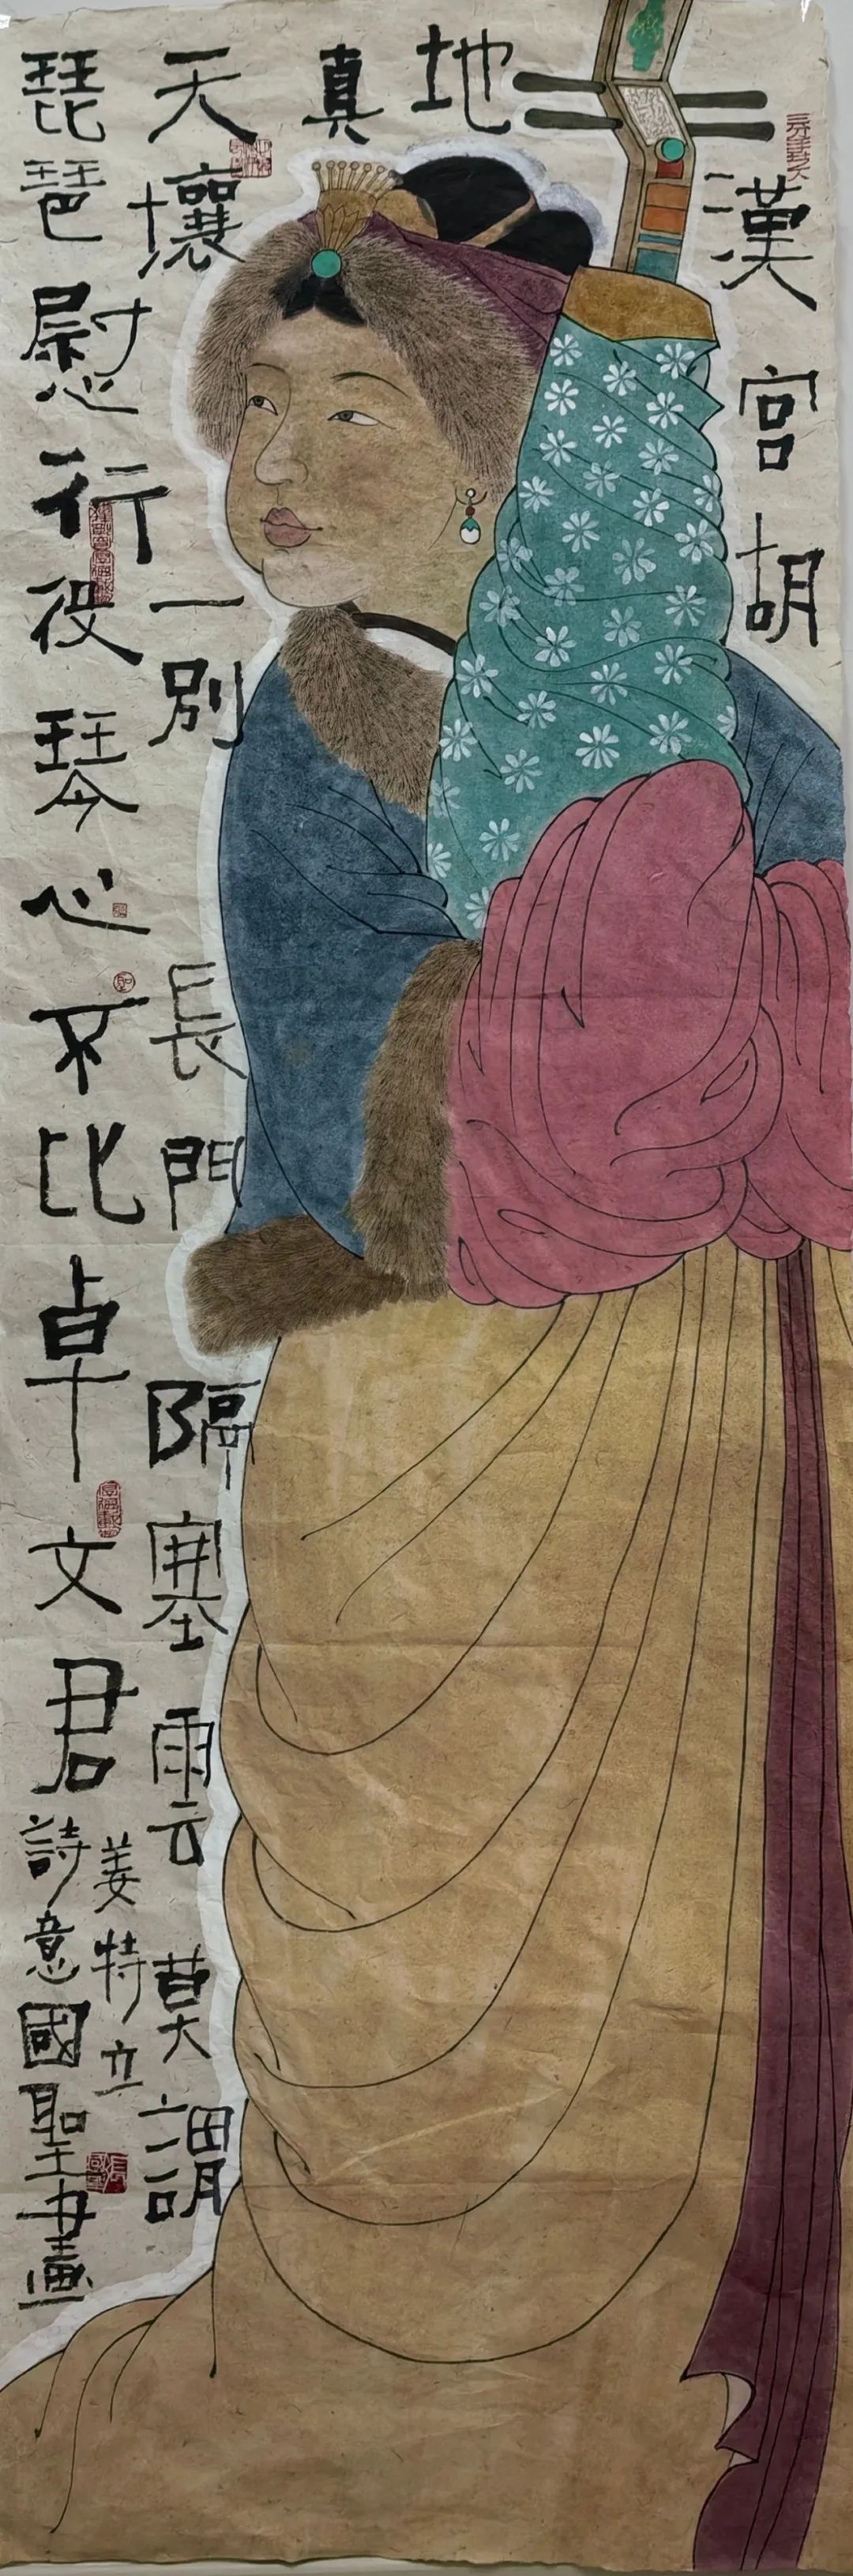 漢宮胡
地
真
天壤一別長門隔塞雲莫謂
琵琶慰行役琴心不比卓文君
姜特立
詩意國聖畫